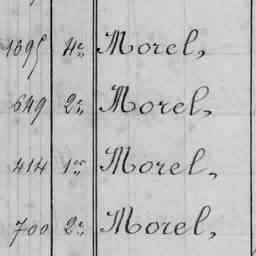 1095 4e Morel,
649 2e Morel,
414 1er Morel,
700 2e Morel,